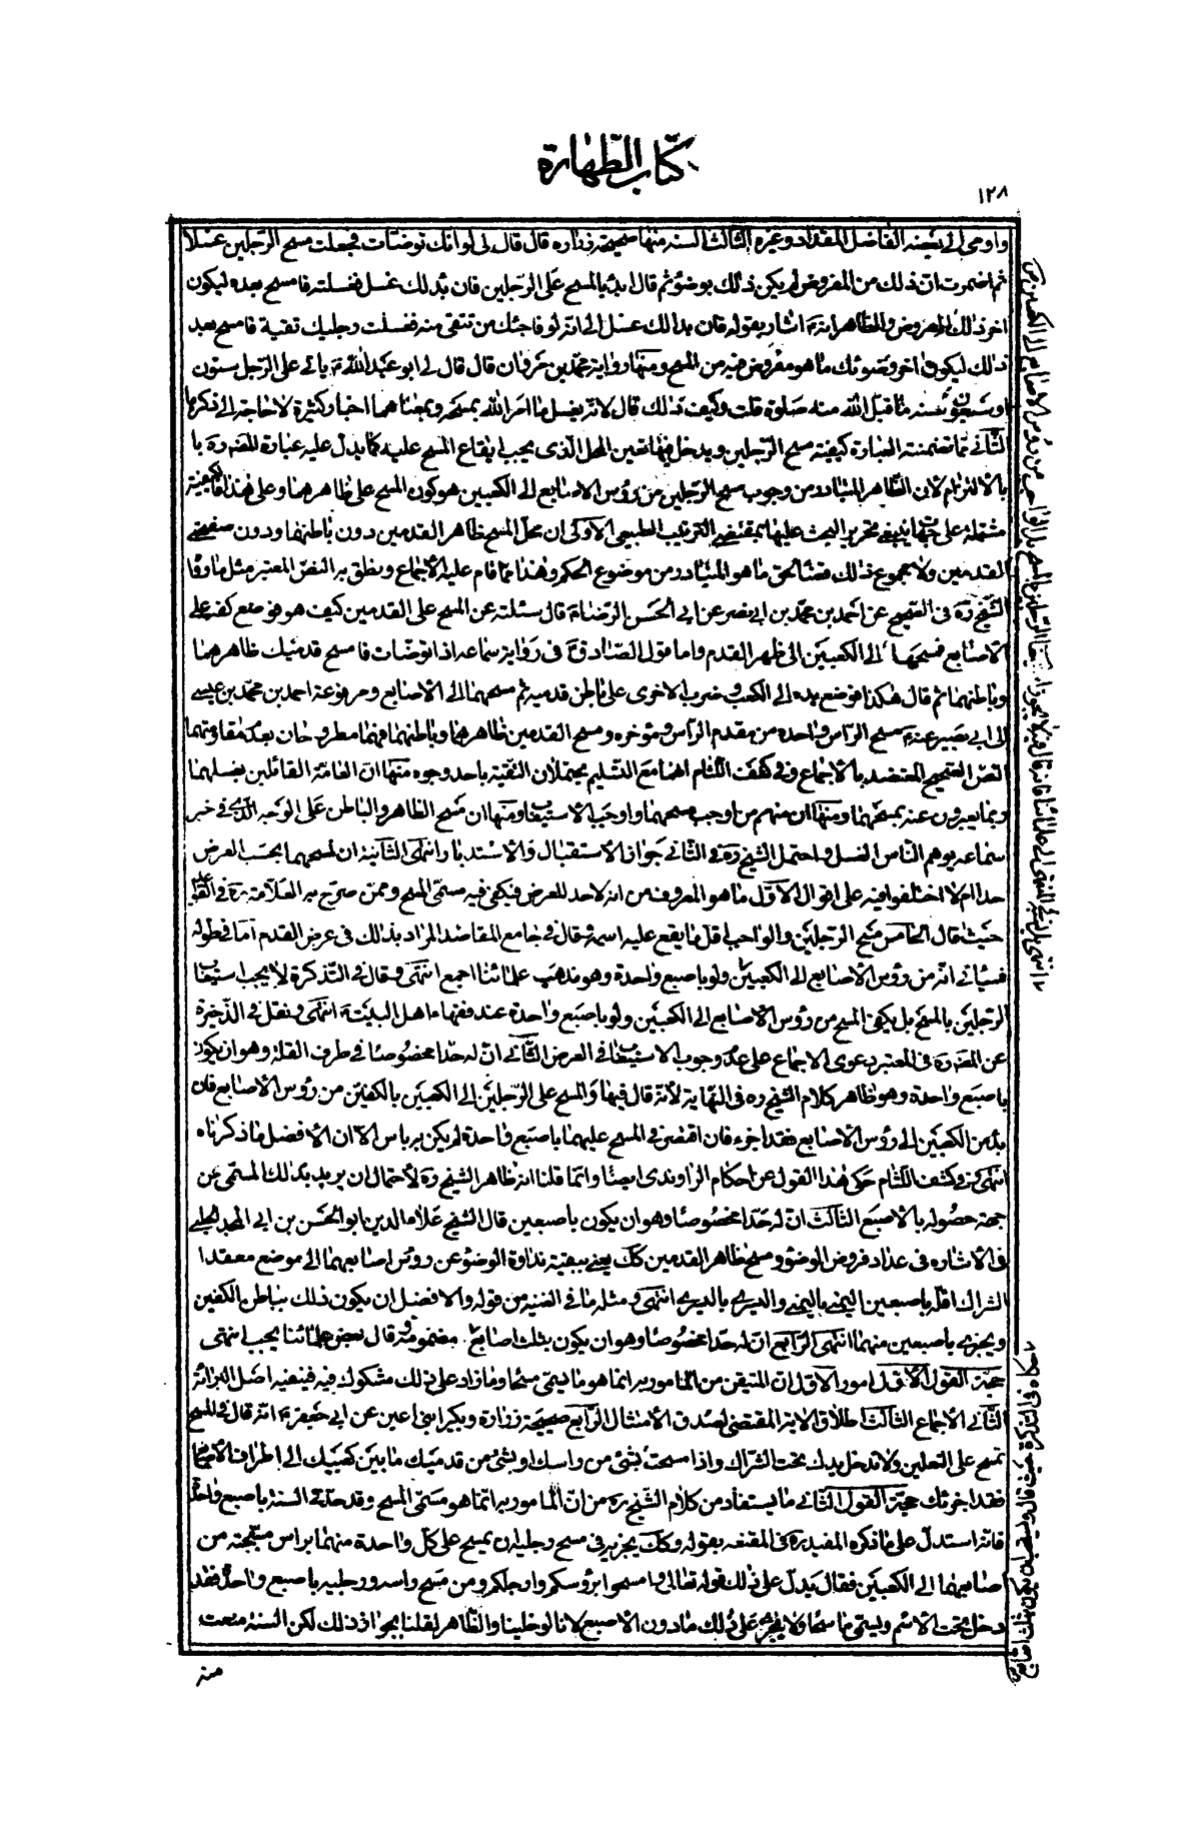 كتاب الطهارة
١٢٨
واومى الى بعضه الفاضل المقداد وغيره الثالث السنه منها صحيحة زراره قال قال لى لو انك توضئات فجعلت مسح الرجلين غسلا
ثم اضمرت ان ذلك من المفروض لم يكن ذلك بوضوء ثم قال ابدء بالمسح على الرجلين فان بدا لك غسل فغسلته فامسح بعده ليكون
اخر ذلك المفروض والظاهر انه اشار بقوله فان بدا لك غسل الى انه لو فاجئك من تتقى منه فغسلت رجليك تقية فامسح بعد
ذلك ليكون اخر وضوئك ما هو مفروض فيه من المسح ومنها رواية محمد بن مروان قال قال لى ابو عبد الله ع ياتى على الرجل ستون
او سبعون سنه ما قبل الله منه صلوة قلت وكيف ذلك قال لانه يغسل ما امر الله بمسحه وبمعناهما اخبار كثيرة لا حاجة الى ذكرها
الثانى مما تضمنته العبارة كيفية مسح الرجلين ويدخل فيها تعيين المحل الذى يجب ايقاع المسح عليه كما يدل عليه عبارة المصنف ره
بالالتزام لان الظاهر المتبادر من وجوب مسح الرجلين من رؤس الاصابع الى الكعبين هو كون المسح على ظاهرهما وعلى هذا فالكيفية
مشتملة على جهات ينبغى تحرير البحث عليها بمقتضى الترتيب الطبيعى الاولى ان محل المسح ظاهر القدمين دون باطنهما ودون صفحتى
القدمين ولا مجموع ذلك فضلا عن ما هو المتبادر من موضوع الحكم وهذا مما قام عليه الاجماع ونطق به النص المعتبر مثل ما رواه
الشيخ ره فى الصحيح عن احمد بن محمد بن ابى نصر عن ابى الحسن الرضا ع قال سئلته عن المسح على القدمين كيف هو فوضع كفه على
الاصابع فمسحها الى الكعبين الى ظهر القدم واما قول الصادق ع فى رواية سماعه اذا توضات فامسح قدميك ظاهرهما
وباطنهما ثم قال هكذا فوضع يده الى الكعب وضرب الاخرى على باطن قدميه ثم مسحهما الى الاصابع ومرفوعة احمد بن محمد بن عيسى
الى ابى بصير عنه ع مسح الراس واحدة من مقدم الراس ومؤخره ومسح القدمين ظاهرهما وباطنهما فهما مطروحان بعد مقاومتهما
النص الصحيح المعتضد بالاجماع وفى كشف اللثام انهما مع التسليم يحتملان التقية باحد وجوه منها ان العامة القائلين بغسلهما
ربما يعبرون عنه بمسحهما ومنها ان منهم من اوجب مسحهما واوجب الاستيعاب ومنها ان مسح الظاهر والباطن على الوجه الذى فى خبر
سماعه يوهم الناس الغسل واحتمل الشيخ ره فى الثانى جواز الاستقبال والاستدبار وانتهى الثانية ان لمسحهما بحسب العرض
حدا ام لا اختلفوا فيه على اقوال الاول ما هو المعروف من انه لا حد للعرض فيكفى فيه مسمى المسح وممن صرح به العلامة ره فى القواعد
حيث قال الخامس مسح الرجلين والواجب اقل ما يقع عليه اسمه وقال فى جامع المقاصد المراد بذلك فى عرض القدم اما فى طوله
فسياتى انه من رؤس الاصابع الى الكعبين ولو باصبع واحدة وهو مذهب علمائنا اجمع انتهى وقال فى التذكرة لا يجب استيعاب
الرجلين بالمسح بل يكفى المسح من رؤس الاصابع الى الكعبين ولو باصبع واحدة عند فقهاء اهل البيت ع انتهى ونقل فى الذخيرة
عن المصنف ره فى المعتبر دعوى الاجماع على عدم وجوب الاستيعاب فى العرض الثانى ان له حدا مخصوصا فى طرف القلة وهو ان يكون
باصبع واحدة وهو ظاهر كلام الشيخ ره فى النهاية لانه قال فيها والمسح على الرجلين الى الكعبين بالكفين من رؤس الاصابع فان
بدء من الكعبين الى رؤس الاصابع فقد اجزء فان اقتصر فى المسح عليهما باصبع واحدة لم يكن به باس الا ان الافضل ما ذكرناه
انتهى وفى كشف اللثام حكى هذا القول عن احكام الراوندى ايضا وانما قلنا انه ظاهر الشيخ ره لاحتمال ان يريد بذلك المسمى من
جهة حصوله بالاصبع الثالث ان له حدا مخصوصا وهو ان يكون باصبعين قال الشيخ علاء الدين ابو الحسن بن ابى المجد الحلبى
فى الاشاره فى عداد فروض الوضوء ومسح ظاهر القدمين كك يعنى ببقية نداوة الوضوء عن رؤس اصابعهما الى موضع معقد
الشراك اقله باصبعين اليمنى باليمنى واليسرى باليسرى انتهى ومثله ما فى الغنيه من قوله والافضل ان يكون ذلك بباطن الكفين
ويجزى باصبعين منهما انتهى الرابع ان له حدا مخصوصا وهو ان يكون بثلث اصابع مضمومة وقال بعض علمائنا يجب انتهى
حجة القول الاول امور الاول ان المتيقن من المامور به انما هو ما يسمى مسحا وما زاد على ذلك مشكوك فيه فينفيه اصل البرائة
الثانى الاجماع الثالث اطلاق الاية المقتضى لصدق الامتثال الرابع صحيحة زرارة وبكير ابنى اعين عن ابى جعفر ع انه قال فى المسح
تمسح على النعلين ولا تدخل يدك تحت الشراك واذا مسحت بشئ من راسك او بشئ من قدميك ما بين كعبيك الى اطراف الاصابع
فقد اجزئك حجة القول الثانى ما يستفاد من كلام الشيخ ره من ان المامور به انما هو مسمى المسح وقد حدته السنة باصبع واحدة
فانه استدل على ما ذكره المفيد ره فى المقنعه بقوله وكك يجزيه فى مسح رجليه ان يمسح على كل واحدة منهما براس مسبحته من
اصابعهما الى الكعبين فقال يدل على ذلك قوله تعالى وامسحوا برؤسكم وارجلكم ومن مسح راسه ورجليه باصبع واحدة فقد
دخل تحت الاسم ويسمى ماسحا ولا يلزم على ذلك ما دون الاصبع لانا لو خلينا والظاهر لقلنا بجواز ذلك لكن السنة منعت
منه